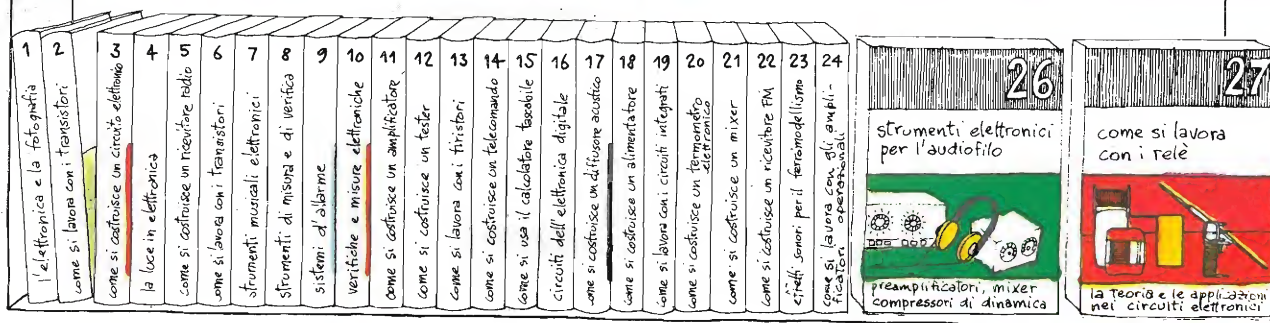 1
l'elettronica e la fotografia
2
come si lavora con i transistori
3
come si costruisce un circuito elettronico
4
la luce in elettronica
5
come si costruisce un ricevitore radio
6
come si lavora con i transistori
7
strumenti musicali elettronici
8
strumenti di misura e di verifica
9
sistemi d'allarme
10
verifiche e misure elettroniche
11
come si costruisce un amplificatore
12
come si costruisce un tester
13
come si lavora con i tiristori
14
come si costruisce un telecomando
15
come si usa il calcolatore tascabile
16
circuiti dell'elettronica digitale
17
come si costruisce un diffusore acustico
18
come si costruisce un alimentatore
19
come si lavora con i circuiti integrati
20
come si costruisce un termometro
elettronico
21
come si costruisce un mixer
22
come si costruisce un ricevitore FM
23
effetti sonori per il ferromodellismo
24
come si lavora con gli ampli-
ficatori operazionali
26
strumenti elettronici
per l'audiofilo
preamplificatori, mixer
compressori di dinamica
27
come si lavora
con i relè
la teoria e le applicazioni
nei circuiti elettronici